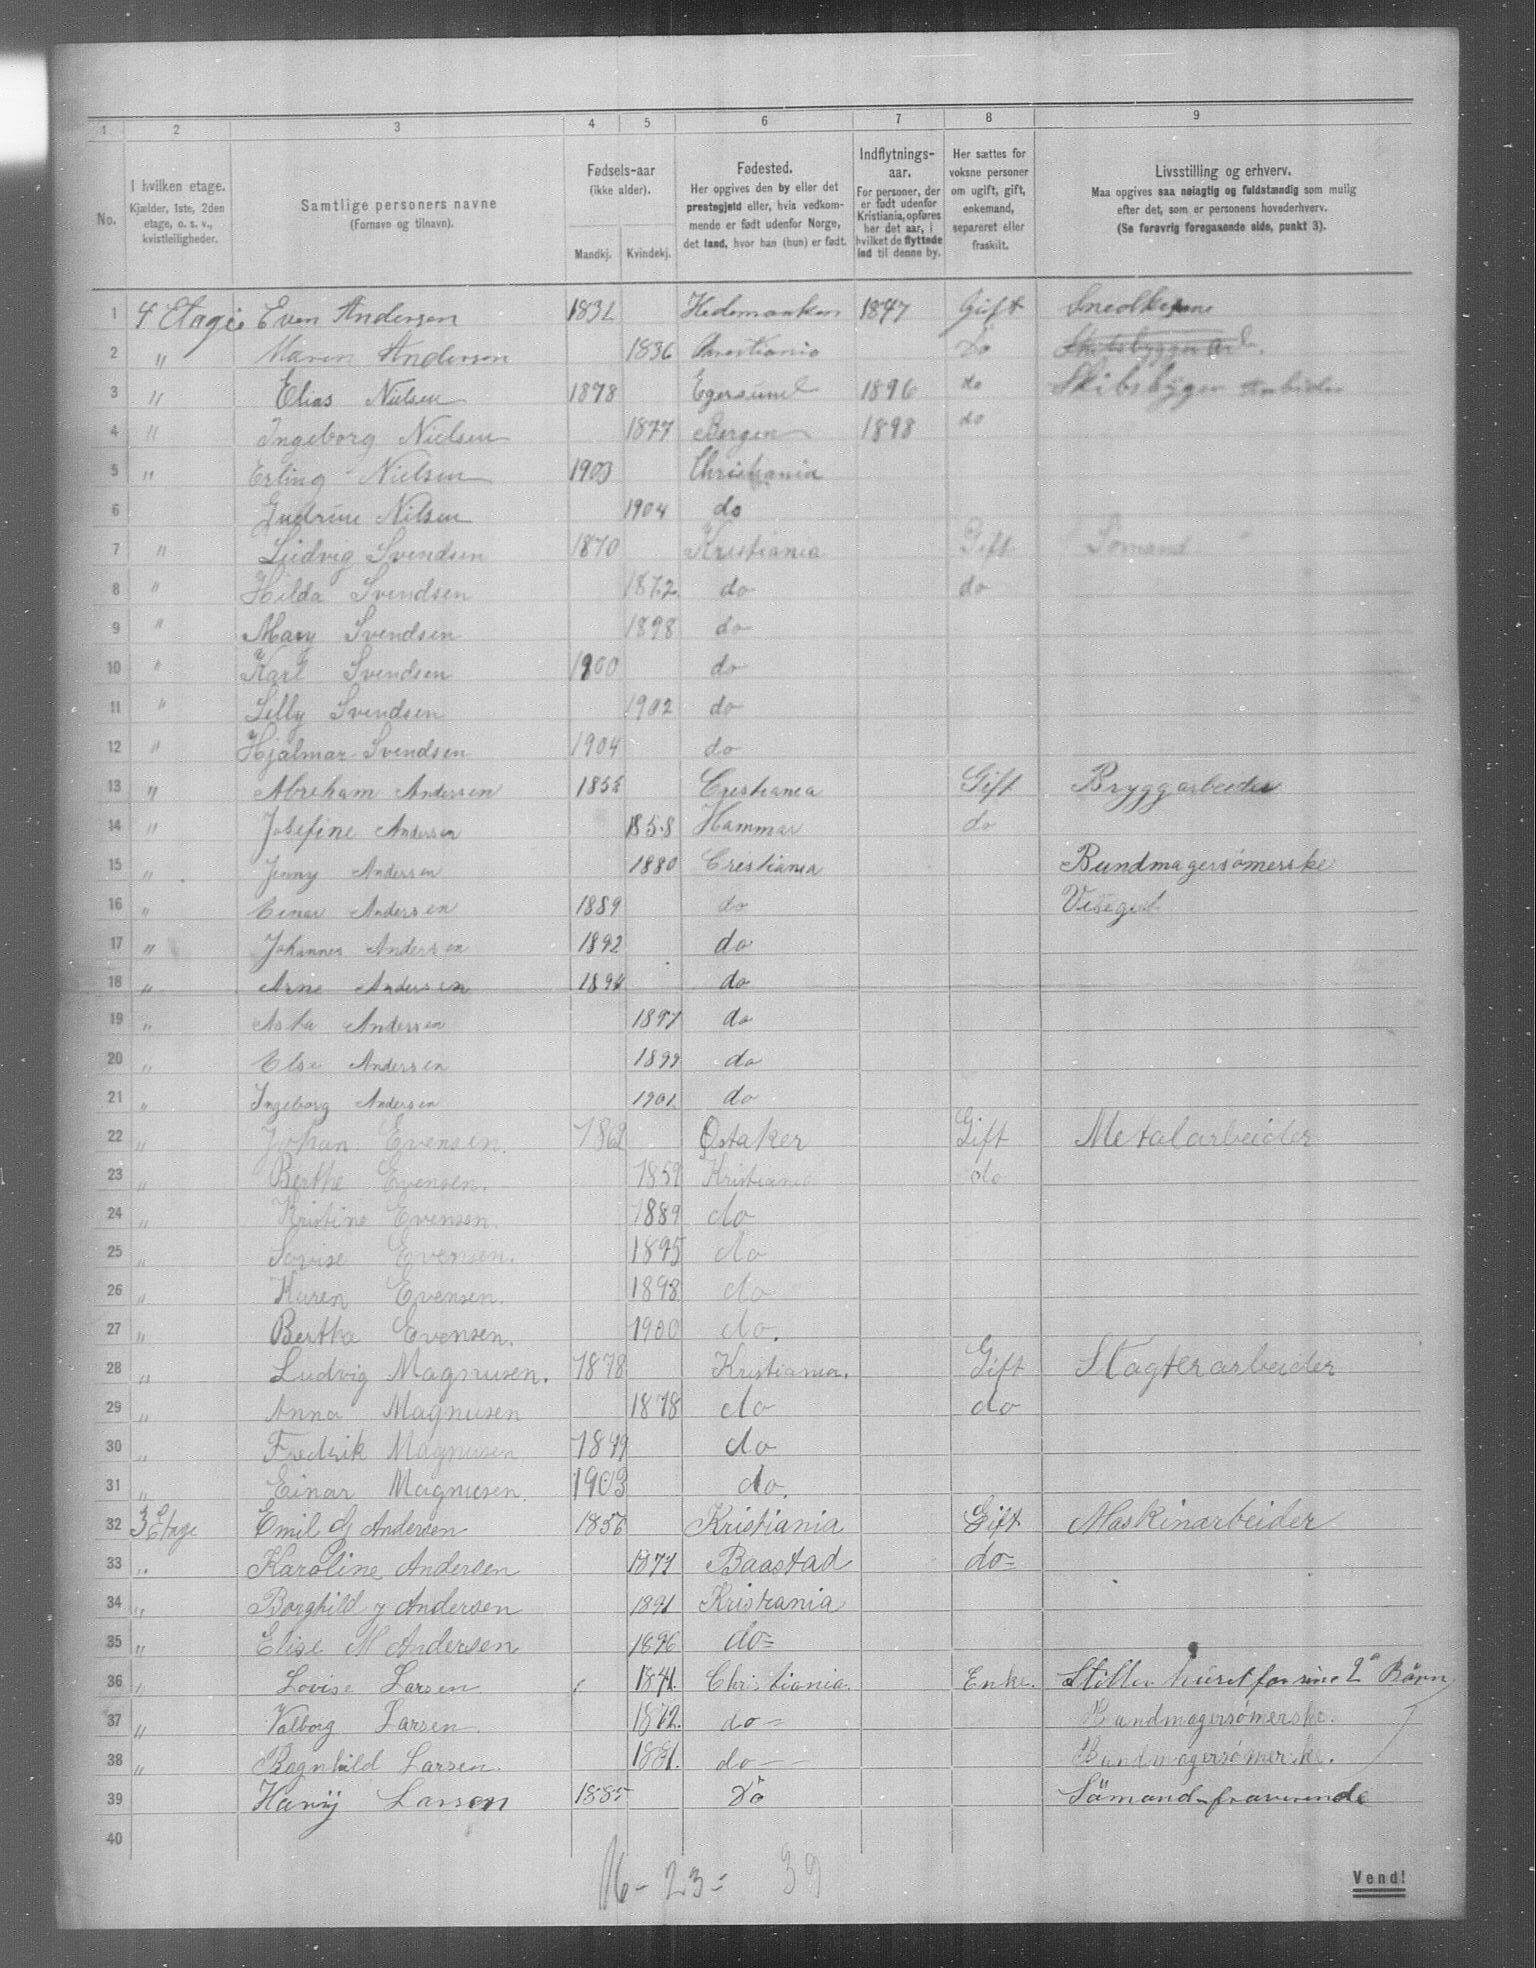 1 2 3 4 5 6 7 8 9
No.
I hvilken etage.
Kjælder, 1ste, 2den
etage, o. s. v.,
kvistleiligheder.
Samtlige personers navne
(Fornavn og tilnavn).
Fødsels-aar
(ikke alder).
Mandkj. Kvindekj.
Fødested.
Her opgives den by eller det
prestegjeld eller, hvis vedkom-
mende er født udenfor Norge,
det land, hvor han (hun) er født.
Indflytnings-
aar.
For personer, der
er født udenfor
Kristiania, opføres
her det aar, i
hvilket de flyttede
ind til denne by.
Her sættes for
voksne personer
om ugift, gift,
enkemand,
separeret eller
fraskilt.
Livsstilling og erhverv.
Maa opgives saa nøiagtig og fuldstændig som mulig
efter det, som er personens hovederhverv.
(Se forøvrig foregaaende side, punkt 3).
1 4 Etage Even Andersen Hedemarken 1847 Gift
2 " Maren Andersen 1836 Do
3 " Elias Nielsen 1878 Egersund 1896 do Skibsbygger Arbeider
4 " Ingeborg Nielsen 1877 Bergen 1898 do
5 " Erling Nielsen 1903 Christiania
6 Gudrun Nilsen 1904 do
7 " Ludvig Svendsen 1870 Kristiania Gift Sömand
8 " Hilda Svendsen 1872 do do
9 " Mary Svendsen 1898 do
10 " Karl Svendsen 1900 do
11 " Lilly Svendsen 1902 do
12 " Hjalmar Svendsen 1904 do
13 " Abreham Andersen Cristiania Gift Bryggarbeider
14 " Josefine Andersen 1858 Hammar do
15 " Jenny Andersen 1880 Cristiania Bundmagersömerske
16 " Einar Andersen 1889 do Visegut
17 " Johannes Andersen 1892 do
18 " Arne Andersen do
19 " Asta Andersen 1897 do
20 " Else Andersen 1899 do
21 " Ingeborg Andersen do
22 " Johan Evensen. 1862 Østaker Gift Metalarbeider
23 " Berthe Evensen. 1859 Kristiania do
24 " Kristine Evensen. 1889 do
25 " Lovise Evensen. 1895 do
26 " Karen Evensen. 1898 do
27 " Bertha Evensen. 1900 do.
28 " Ludvig Magnusen. 1878 Kristiania. Gift Slagterarbeider
29 " Anna Magnusen 1878 do do
30 " Fredrik Magnusen 1899 do
31 " Einar Magnusen. 1903 do.
32 3 Etage Emil G Andersen 1856 Kristiania Gift Maskinarbeider
33 " Karoline Andersen Baastad do=
34 " Borghild J Andersen 1891 Kristiania
35 " Elise M Andersen 1896 do=
36 " Lovise Larsen 1841. Christiania. Enke. Steller huset for sine 2 Börn
37 " Valborg Larsen. 1872. do= Bundmagersömerske.
38 " Ragnhild Larsen. 1881. do Bundmagersömerske.
39 Harrÿ Larsen 1885 Do Sömand fraværende
40
16 - 23 = 39
Vend!